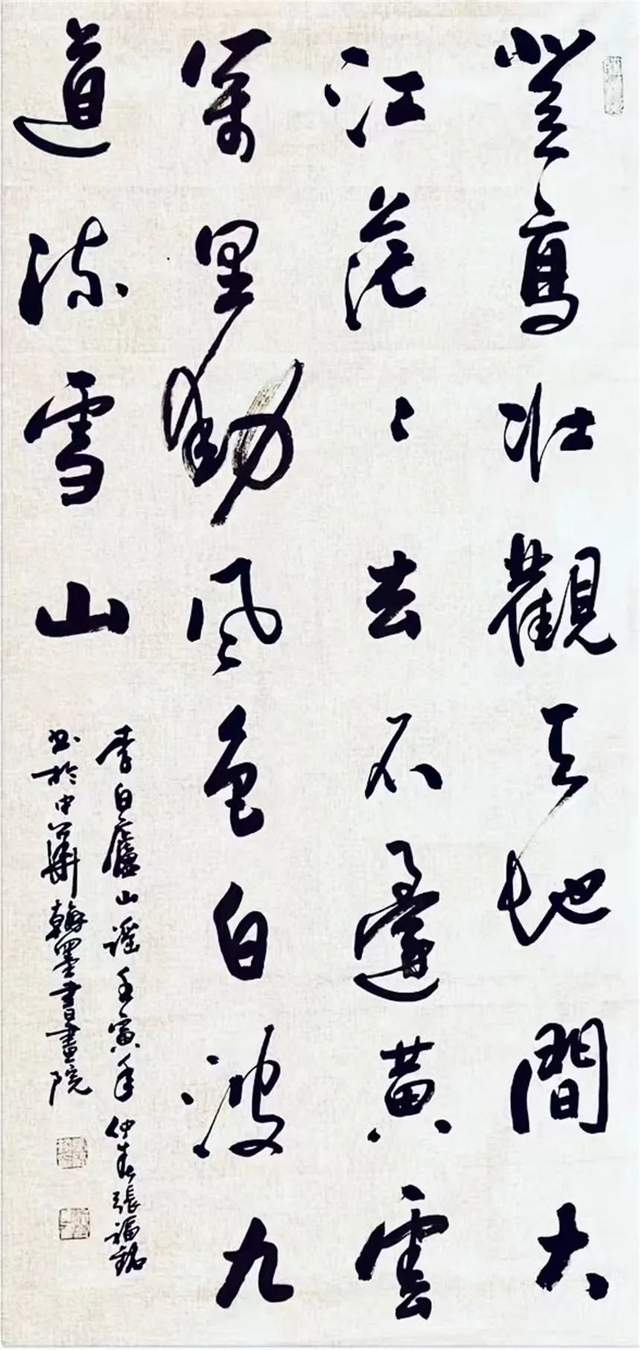 登高壯觀天地間大
江茫々去不還黃雲
萬里動風色白波九
道流雪山
李白廬山謡壬寅年仲春張福銘
书於中華翰墨書畫院